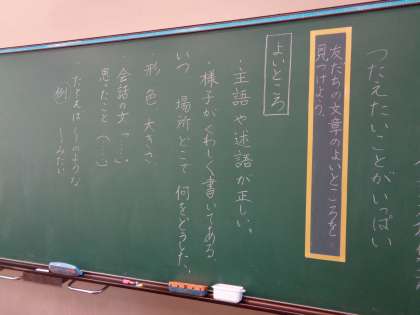 つたえたいことがいっぱい
友だちの文章のよいところを
見つけよう。
よいところ
・主語や述語が正しい。
・様子がくわしく書いてある。
いつ 場所 どこで 何をどうした。
・形 色 大きさ
・会話の文「……」
思ったこと(……)
たとえば〜のような
例 〜みたいに